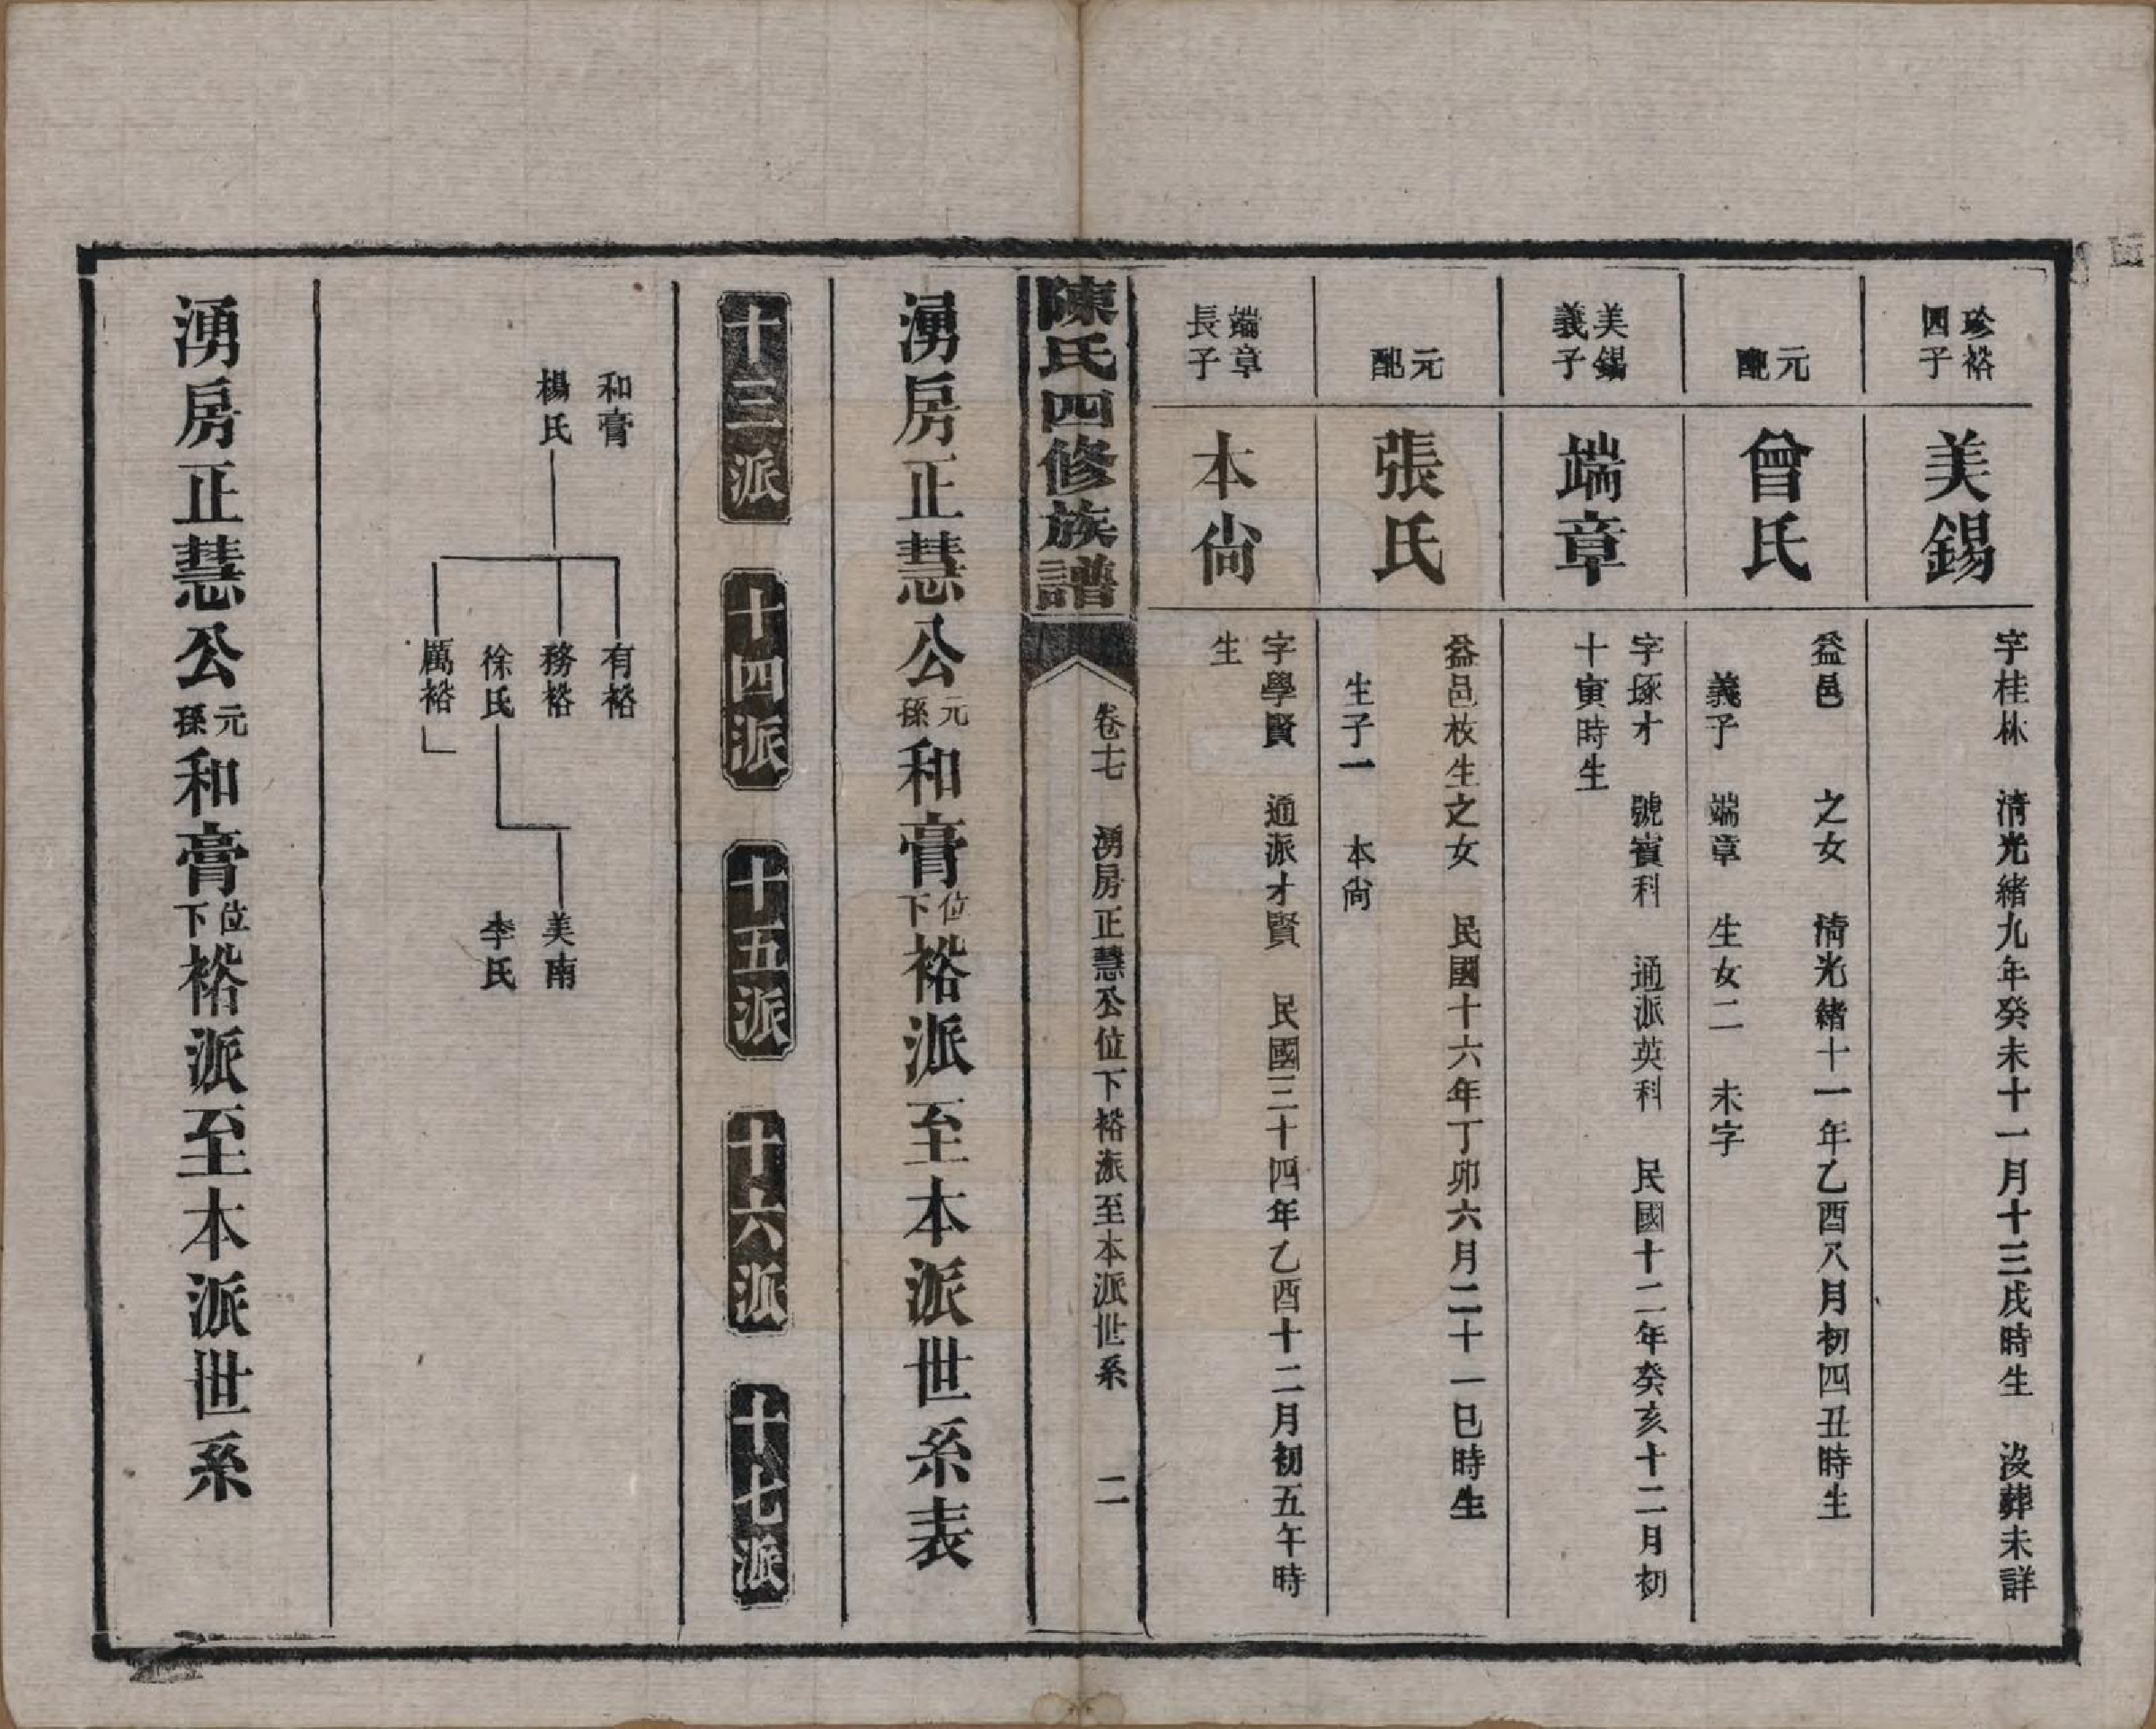 珍裕
四子
美錫
字桂林　清光緒九年癸未十一月十三戌時生　沒葬未詳
元
配
曾氏
益邑　　之女　清光緒十一年乙酉八月初四丑時生
義子　端章　生女二　未字
美錫
義子
端章
字琢才　號賓科　通派英科　民國十二年癸亥十二月初
十寅時生
元
配
張氏
益邑枚生之女　民國十六年丁卯六月二十一巳時生
生子一　本尙
端章
長子
本尙
字學賢　通派才賢　民國三十四年乙酉十二月初五午時
生
陳氏四修族譜
卷十七　湧房正慧公位下裕派至本派世系　二
湧房正慧公元孫和膏位下裕派至本派世系表
十三派　十四派　十五派　十六派　十七派
和膏
楊氏
有裕
務裕
徐氏
厲裕
美南
李氏
湧房正慧公元孫和膏位下裕派至本派世系